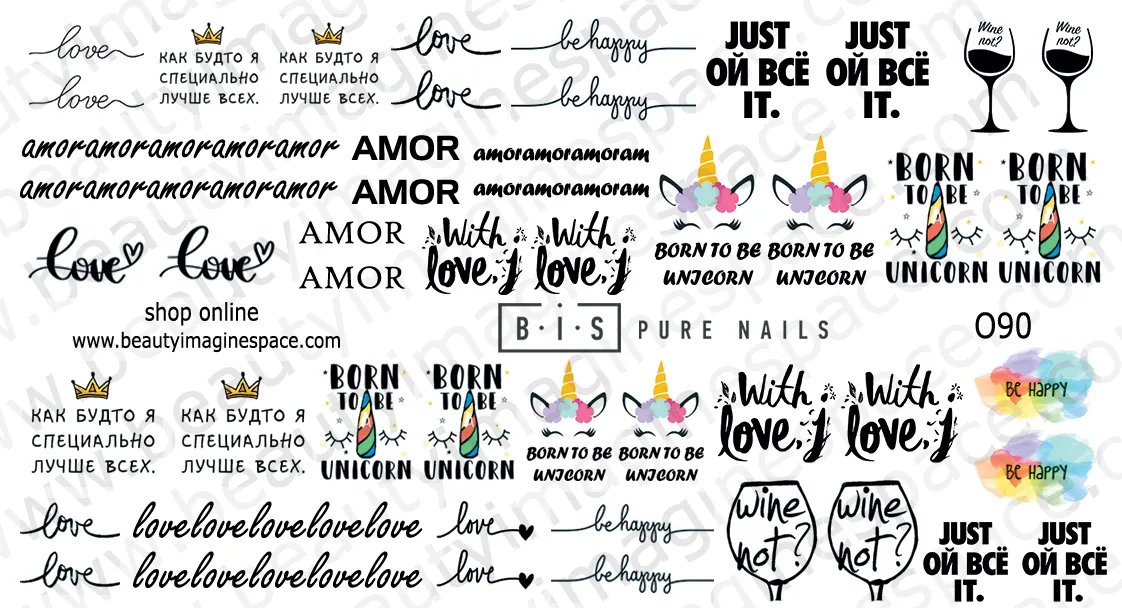 love
КАК БУДТО Я
СПЕЦИАЛЬНО
ЛУЧШЕ ВСЕХ.
КАК БУДТО Я
СПЕЦИАЛЬНО
ЛУЧШЕ ВСЕХ.
love
be happy
JUST
ОЙ ВСЁ
IT.
JUST
ОЙ ВСЁ
IT.
Wine
not?
Wine
not?
love
love
be happy
amoramoramoramoramor
AMOR
amoramoramoram
amoramoramoramoramor
AMOR
amoramoramoram
BORN
TO BE
UNICORN
BORN
TO BE
UNICORN
love
love
AMOR
AMOR
With
love,
With
love,
BORN TO BE
UNICORN
BORN TO BE
UNICORN
shop online
www.beautyimaginespace.com
B·i·S PURE NAILS
O90
КАК БУДТО Я
СПЕЦИАЛЬНО
ЛУЧШЕ ВСЕХ.
КАК БУДТО Я
СПЕЦИАЛЬНО
ЛУЧШЕ ВСЕХ.
BORN
TO BE
UNICORN
BORN
TO BE
UNICORN
BORN TO BE
UNICORN
BORN TO BE
UNICORN
With
love,
With
love,
Be HAPPY
Be HAPPY
love
lovelovelovelovelove
love
be happy
wine
not?
wine
not?
JUST
ОЙ ВСЁ
IT.
JUST
ОЙ ВСЁ
IT.
love
lovelovelovelovelove
love
be happy
www.beautyimaginespace.com